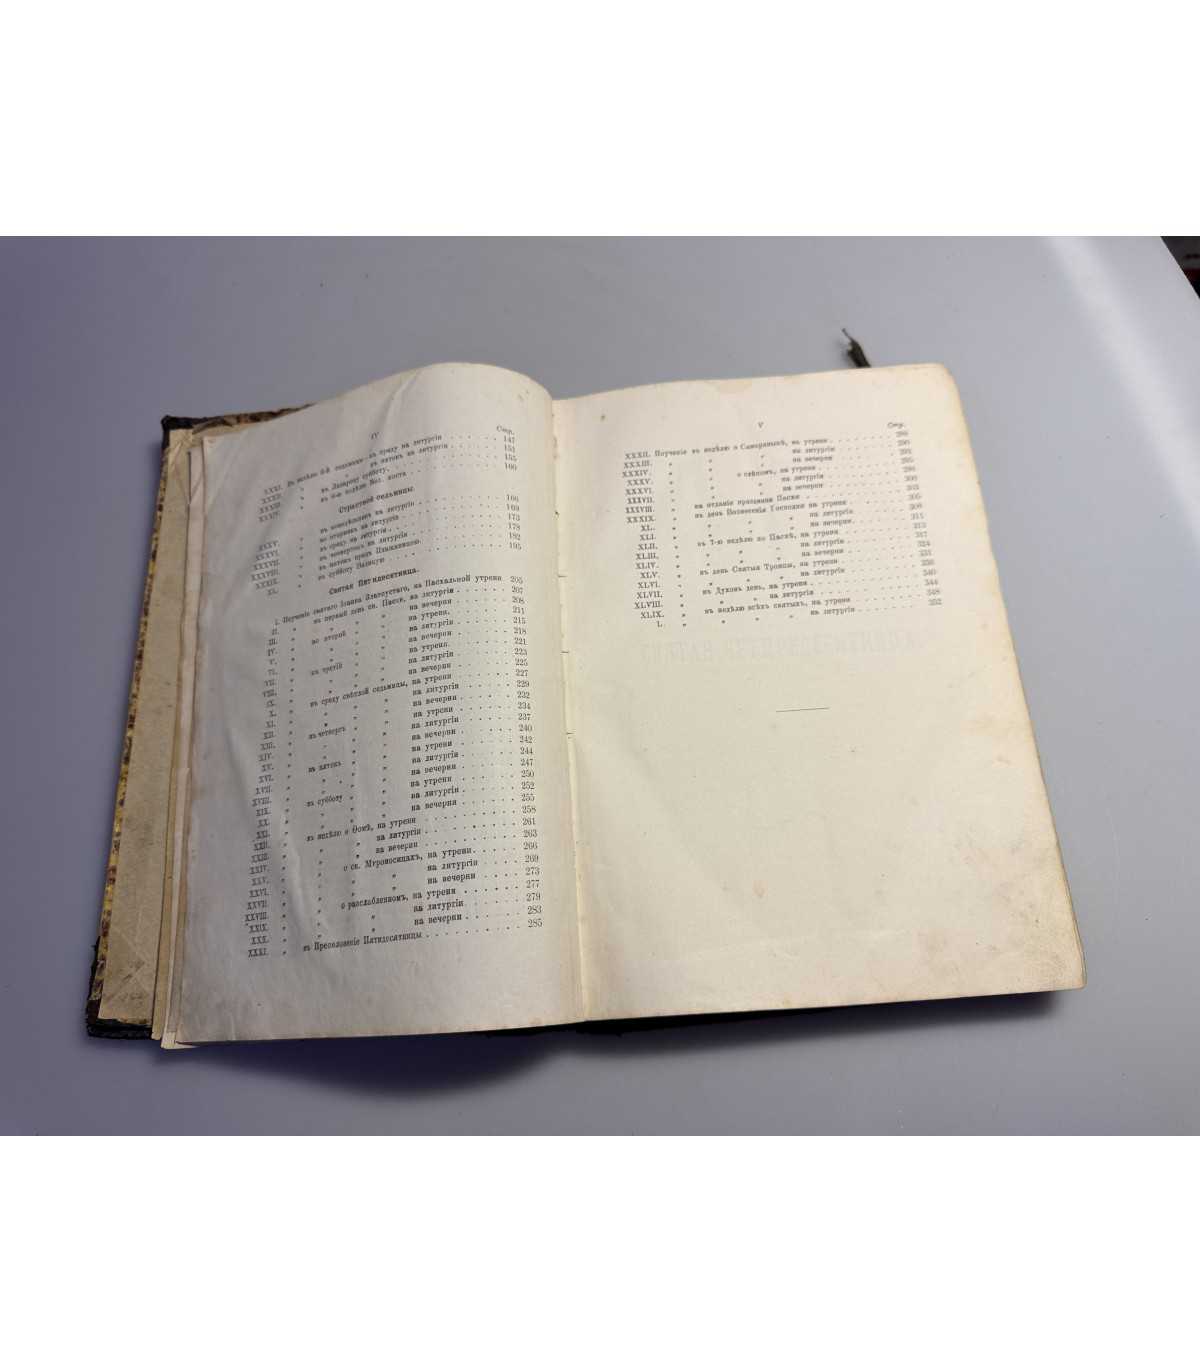 IV
Стр.
XXXI. Въ недѣлю 6-й седмицы въ среду на литургіи . . . . . . 147
XXXII. „ „ въ пятокъ на литургіи . . . . . . 151
XXXIII. „ въ Лазареву субботу. . . . . . 155
XXXIV. „ въ 6-ю недѣлю Вел. поста . . . . . . 160
Страстной седьмицы.
XXXV. въ понедѣльникъ на литургіи . . . . . . 166
XXXVI. „ во вторникъ на литургіи . . . . . . 169
XXXVII. „ въ среду на литургіи . . . . . . 173
XXXVIII. „ въ четвертокъ на литургіи . . . . . . 178
XXXIX. „ въ пятокъ предъ Плащаницею. . . . . . 182
XL. „ въ субботу Великую . . . . . . 195
Святая Пятидесятница.
I. Поученіе святаго Іоанна Златоустаго, на Пасхальной утрени 205
II. „ въ первый день св. Пасхи, на литургіи . . . 207
III. „ „ „ „ на вечерни . . . 208
IV. „ во второй „ „ на утрени. . . . 211
V. „ „ „ „ на литургіи . . . 215
VI. „ „ „ „ на вечерни . . . 218
VII. „ въ третій „ „ на утрени. . . . 221
VIII. „ „ „ „ на литургіи . . . 223
IX. „ „ „ „ на вечерни . . . 225
X. „ въ среду свѣтлой седьмицы, на утрени . . . 227
XI. „ „ „ „ на литургіи . . . 229
XII. „ „ „ „ на вечерни . . . 232
XIII. „ въ четвергъ „ „ на утрени . . . 234
XIV. „ „ „ „ на литургіи . . . 237
XV. „ „ „ „ на вечерни . . . 240
XVI. „ въ пятокъ „ „ на утрени . . . 242
XVII. „ „ „ „ на литургіи . . . 244
XVIII. „ „ „ „ на вечерни . . . 247
XIX. „ въ субботу „ „ на утрени . . . 250
XX. „ „ „ „ на литургіи . . . 252
XXI. „ „ „ „ на вечерни . . . 255
XXII. „ въ недѣлю о Ѳомѣ, на утрени . . . . . . 258
XXIII. „ „ „ на литургіи . . . . . . 261
XXIV. „ „ „ на вечерни . . . . . . 263
XXV. „ „ о св. Мѵроносицахъ, на утрени. . . . . 266
XXVI. „ „ „ „ на литургіи . . . . 269
XXVII. „ „ „ „ на вечерни . . . . 273
XXVIII. „ „ о разслабленномъ, на утрени . . . . . . 277
XXIX. „ „ „ на литургіи . . . . . . 279
XXX. „ „ „ на вечерни . . . . . . 283
XXXI. „ въ Преполовеніе Пятидесятницы . . . . . . 285
V
Стр.
XXXII. Поученіе въ недѣлю о Самаряныхѣ, на утрени . . . . . . 288
XXXIII. „ „ „ на литургіи . . . . . . 290
XXXIV. „ „ „ на вечерни . . . . . . 292
XXXV. „ „ о слѣпомъ, на утрени . . . . . . 295
XXXVI. „ „ „ на литургіи . . . . . . 298
XXXVII. „ „ „ на вечерни . . . . . . 300
XXXVIII. „ на отданіе праздника Пасхи . . . . . . 303
XXXIX. „ въ день Вознесенія Господня на утрени . . . . . . 305
XL. „ „ „ „ на литургіи . . . . . . 308
XLI. „ „ „ „ на вечерни. . . . . . 311
XLII. „ въ 7-ю недѣлю по Пасхѣ, на утрени . . . . . . 313
XLIII. „ „ „ „ на литургіи . . . . . . 317
XLIV. „ „ „ „ на вечерни . . . . . . 324
XLV. „ въ день Святыя Троицы, на утрени . . . . . . 331
XLVI. „ „ „ „ на литургіи . . . . . .
XLVII. „ въ Духовъ день, на утрени . . . . . . 340
XLVIII. „ „ „ на литургіи . . . . . . 344
XLIX. „ въ недѣлю всѣхъ святыхъ, на утрени . . . . . . 348
L. „ „ „ „ на литургіи . . . . . . 352